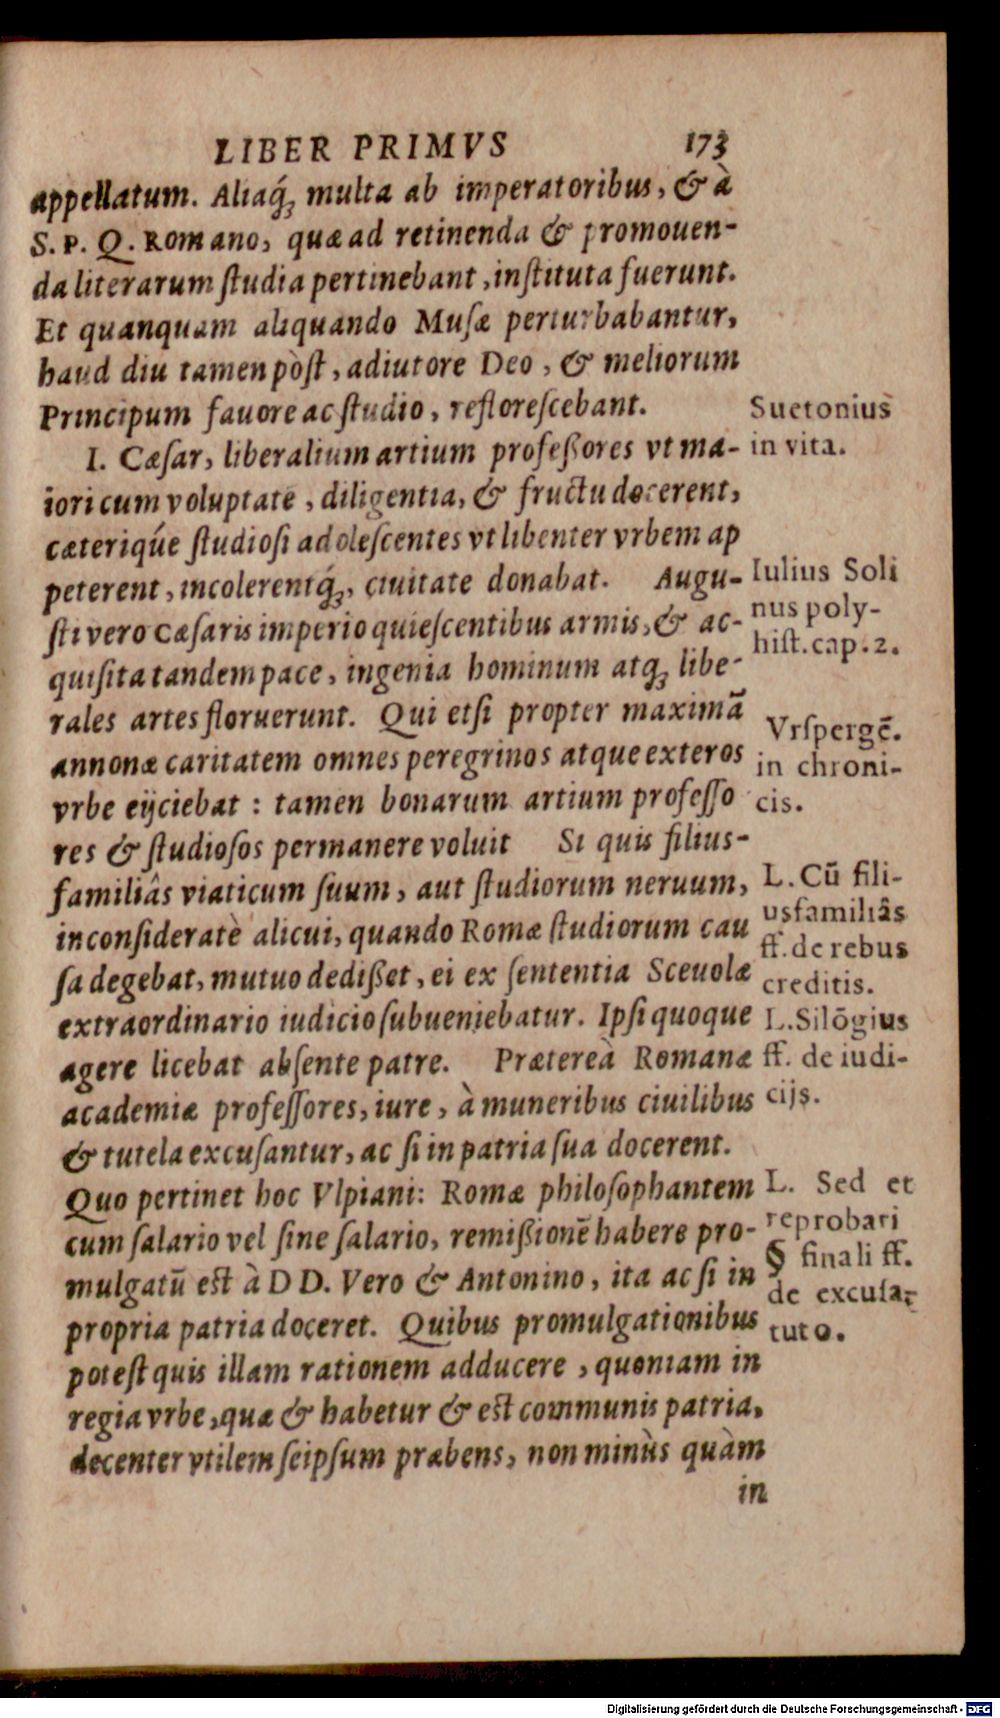 LIBER PRIMVS 173
appellatum. Aliaq́ꝫ multa ab imperatoribus, & à
S. P. Q. ROMANO, quæ ad retinenda & promouen-
da literarum ſtudia pertinebant, inſtituta fuerunt.
Et quanquam aliquando Muſæ perturbabantur,
haud diu tamen pòſt, adiutore Deo, & meliorum
Principum fauore ac ſtudio, refloreſcebant.
I. Cæſar, liberalium artium profeßores vt ma-
iori cum voluptate, diligentia, & fructu docerent,
cæteriq́ue ſtudioſi adoleſcentes vt libenter vrbem ap
peterent, incolerentq́ꝫ, ciuitate donabat. Augu-
ſti vero Cæſaris imperio quieſcentibus armis, & ac-
quiſita tandem pace, ingenia hominum atqꝫ libe-
rales artes floruerunt. Qui etſi propter maximã
annonæ caritatem omnes peregrinos atque exteros
vrbe eijciebat : tamen bonarum artium profeſſo
res & ſtudioſos permanere voluit Si quis filius-
familiâs viaticum ſuum, aut ſtudiorum neruum,
inconſideratè alicui, quando Romæ ſtudiorum cau
ſa degebat, mutuo dedißet, ei ex ſententia Sceuolæ
extraordinario iudicio ſubueniebatur. Ipſi quoque
agere licebat abſente patre. Prætereà Romanæ
academiæ profeſſores, iure, à muneribus ciuilibus
& tutela excuſantur, ac ſi in patria ſua docerent.
Quo pertinet hoc Vlpiani: Romæ philoſophantem
cum ſalario vel ſine ſalario, remißionẽ habere pro-
mulgatũ eſt à D D. Vero & Antonino, ita ac ſi in
propria patria doceret. Quibus promulgationibus
poteſt quis illam rationem adducere, quoniam in
regia vrbe, quæ & habetur & eſt communis patria,
decenter vtilem ſeipſum præbens, non minùs quàm
in
Suetonius
in vita.
Iulius Soli
nus poly-
hiſt. cap. 2.
Vrſpergẽ.
in chroni-
cis.
L. Cũ fili-
usfamiliâs
ff. de rebus
creditis.
L. Silõgius
ff. de iudi-
cijs.
L. Sed et
reprobari
§ finali ff.
de excuſa-
tuto.
Digitalisierung gefördert durch die Deutsche Forschungsgemeinschaft - DFG